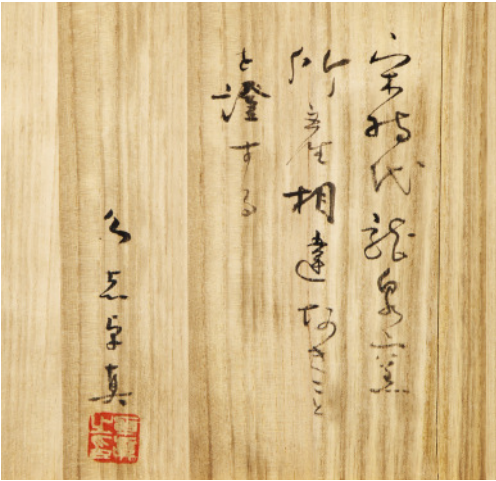 宋時代龍泉窯
所産相違なきこと
を證する
久志卓真